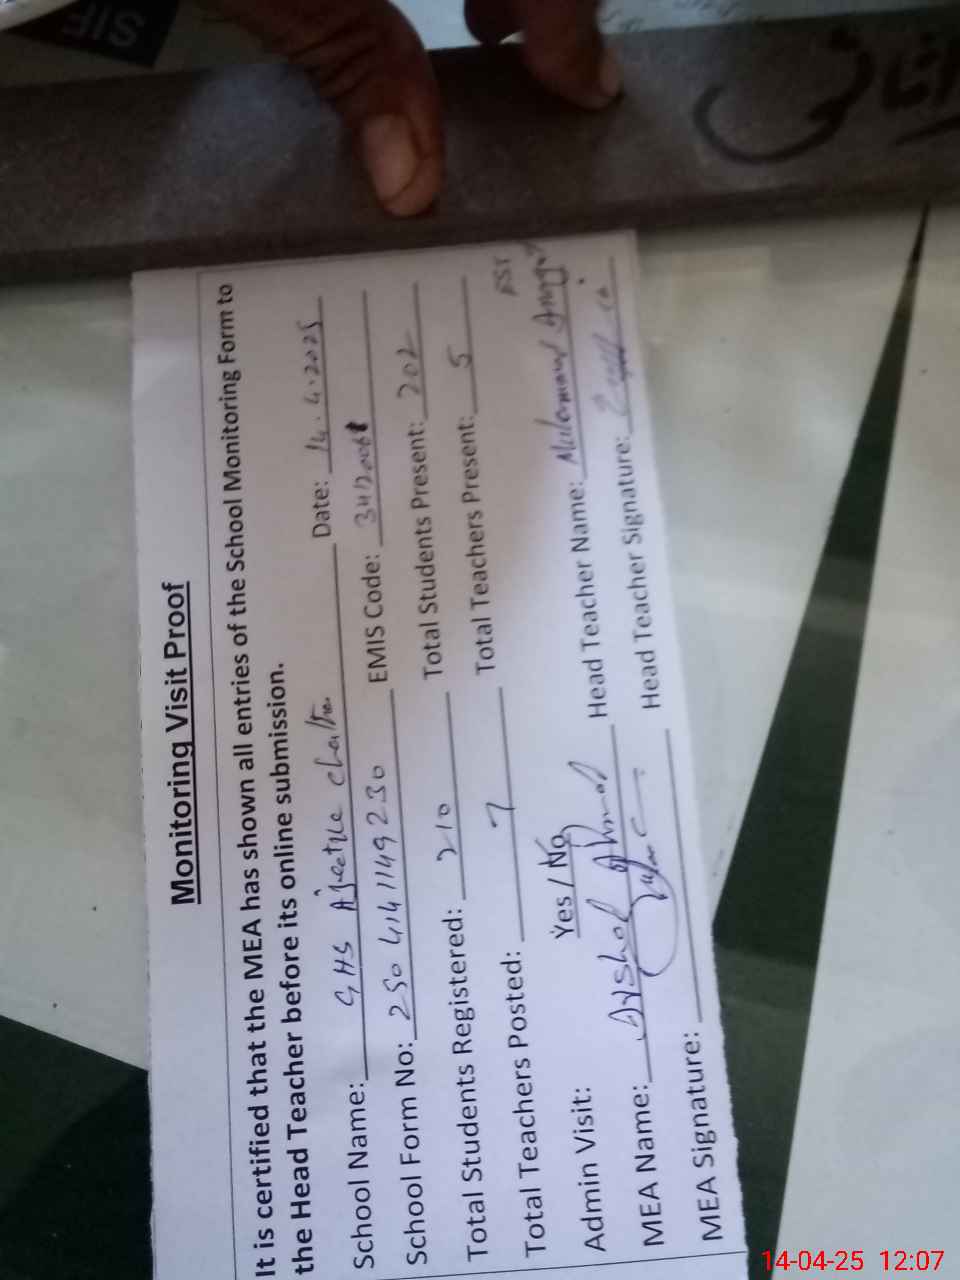 Monitoring Visit Proof
It is certified that the MEA has shown all entries of the School Monitoring Form to
the Head Teacher before its online submission.
School Name: GHS Ajeetke Chattha Date: 14.4.2025
School Form No: 2504141149230 EMIS Code:
Total Students Registered: 210 Total Students Present: 202
Total Teachers Posted: 7 Total Teachers Present: 5
Admin Visit: Yes / No EST
MEA Name: Arshad Ahmad Head Teacher Name: Muhammad
MEA Signature: Head Teacher Signature:
SIF
14-04-25 12:07